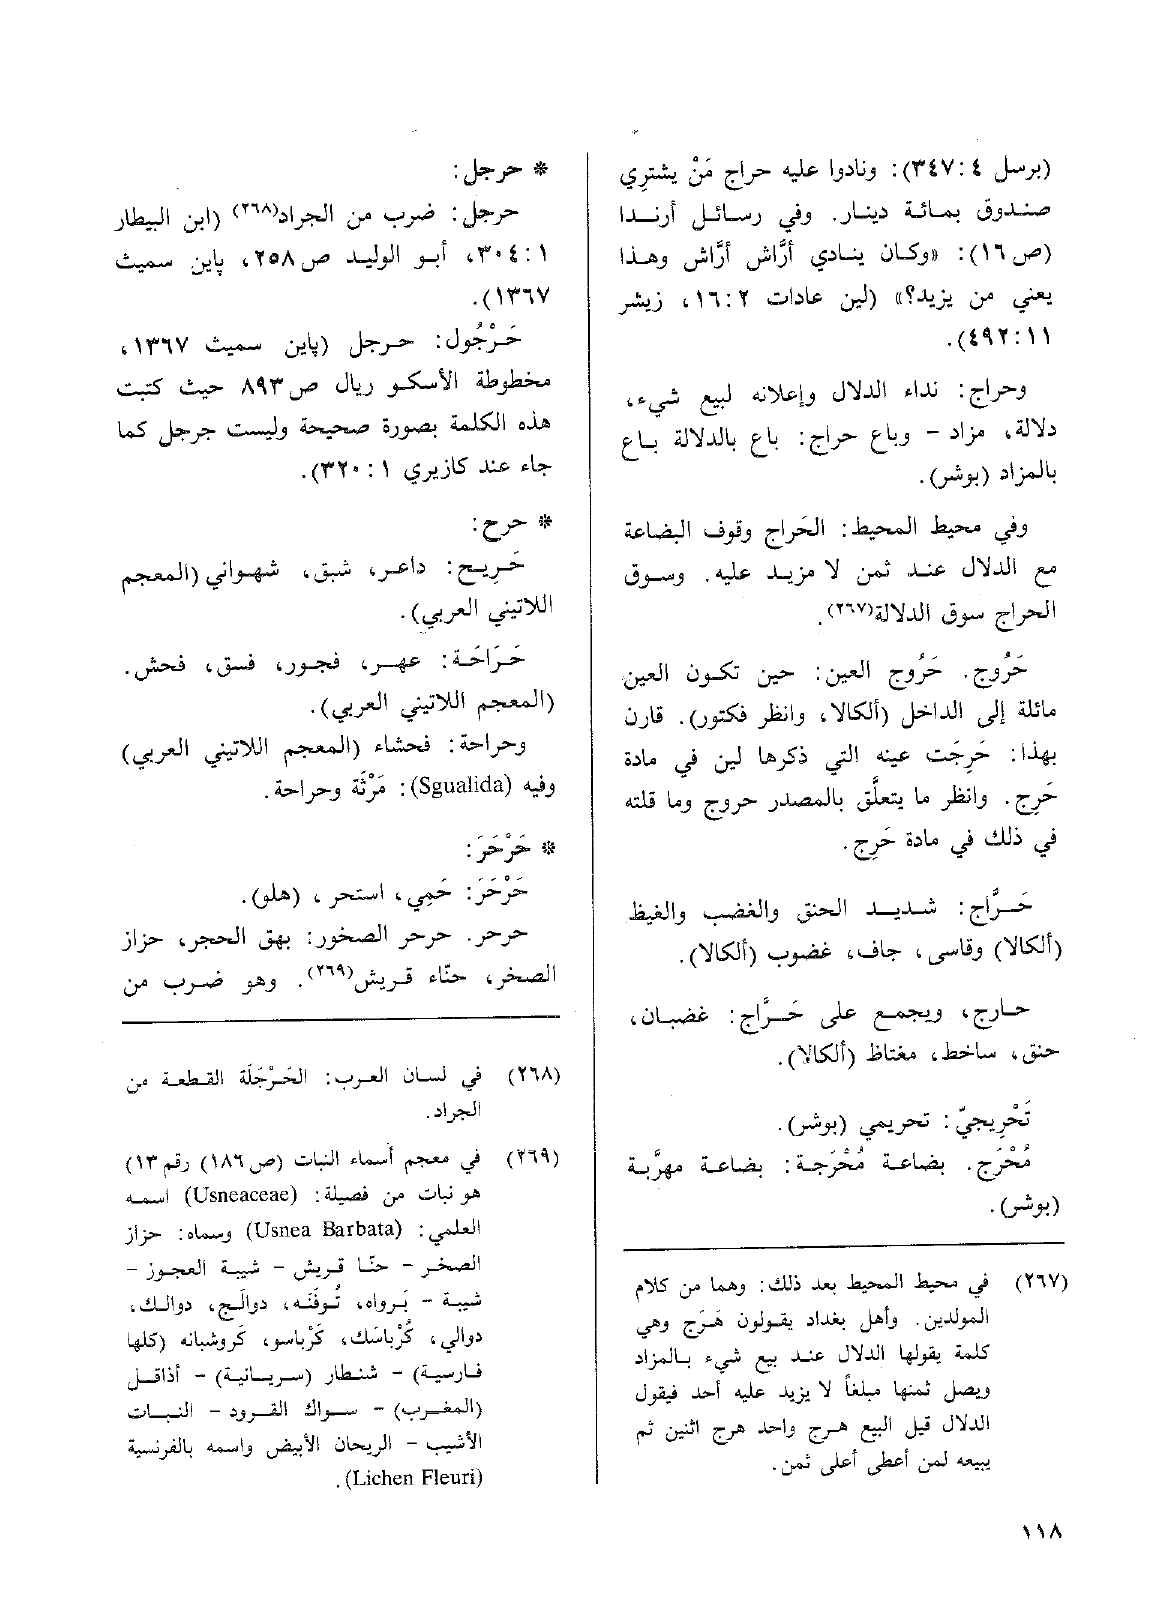 (برسل ٤ : ٣٤٧): ونادوا عليه حراج مَنْ يشتري
صندوق بمائة دينار. وفي رسائل أرنـدا
(ص١٦): «وكـان ينـادي أرَّاش أرَّاش وهـذا
يعني من يزيد؟» (لين عادات ٢ : ١٦، زيشر
١١ : ٤٩٢).
وحراج: نداء الدلال وإعلانه لبيع شيء،
دلالة، مزاد - وباع حراج: باع بالدلالة بـاع
بالمزاد (بوشر).
وفي محيط المحيط: الحَراج وقوف البضاعة
مع الدلال عنـد ثمن لا مزيـد عليه. وسـوق
الحراج سوق الدلالة(٢٦٧).
حَرُوج. حَرُوج العين: حين تكـون العين
مائلة إلى الداخل (ألكالا، وانظر فكتور). قارن
بهذا: حَرِجَت عينه التي ذكرها لين في مادة
حَرِج. وانظر ما يتعلَّق بالمصدر حروج وما قلته
في ذلك في مادة حَرِج.
حَـرَّاج: شديـد الحنق والغضب والغيظ
(ألكالا) وقاسى، جاف، غضوب (ألكالا).
حـارج، ويجمـع على حَـرَّاج: غضبـان،
حنق، ساخط، مغتاظ (ألكالا).
تَحْرِيجيّ: تحريمي (بوشر).
مُحْرَج. بضاعـة مُحْرَجـة: بضاعـة مهرَّبـة
(بوشر).
(٢٦٧) في محيط المحيط بعد ذلك: وهما من كلام
المولدين. وأهل بغداد يقـولون هَـرَج وهي
كلمة يقولها الدلال عنـد بيع شيء بـالمزاد
ويصل ثمنها مبلغاً لا يزيد عليه أحد فيقول
الدلال قبل البيع هـرج واحد هرج اثنين ثم
يبيعه لمن أعطى أعلى ثمن.
* حرجل:
حرجل: ضرب من الجراد(٢٦٨) (ابن البيطار
١ : ٣٠٤، أبـو الوليـد ص٢٥٨، پاين سميث
١٣٦٧).
حَـرْجُول: حـرجل (پاين سميث ١٣٦٧،
مخطوطة الأسكـو ريال ص٨٩٣ حيث كتبت
هذه الكلمة بصورة صحيحة وليست جرجل كما
جاء عند كازيري ١ : ٣٢٠).
* حرح:
حَـرِيـح: داعـر، شبق، شهـواني (المعجم
اللاتيني العربي).
حَـرَاحَـة: عهـر، فجـور، فسق، فحش.
(المعجم اللاتيني العربي).
وحراحة: فحشاء (المعجم اللاتيني العربي)
وفيه (Sgualida): مَرْثَة وحراحة.
* حَرْحَرَ:
حَرْحَرَ: حَمِي، استحر، (هلو).
حرحر. حرحر الصخور: بهق الحجر، حزاز
الصخر، حنّاء قـريش(٢٦٩). وهو ضـرب من
(٢٦٨) في لسـان العـرب: الحَـرْجَلَة القـطعـة من
الجراد.
(٢٦٩) في معجم أسماء النبات (ص ١٨٦) رقم ١٣)
هو نبات من فصيلة: (Usneaceae) اسمـه
العلمي: (Usnea Barbata) وسماه: حزاز
الصخـر - حنّـا قـريش - شيبـة العجوز -
شيبـة - بَـرواه، تُـوفَنَـه، دوالَـج، دوالـك،
دوالي، كُرْباسَك، كَرْباسو، كَروشبانه (كلها
فـارسيـة) - شنطار (سـريـانيـة) - أذاقـل
(المغـرب) - سـواك القـرود - النبـات
الأشيب - الريحان الأبيض واسمه بالفرنسية
(Lichen Fleuri).
١١٨